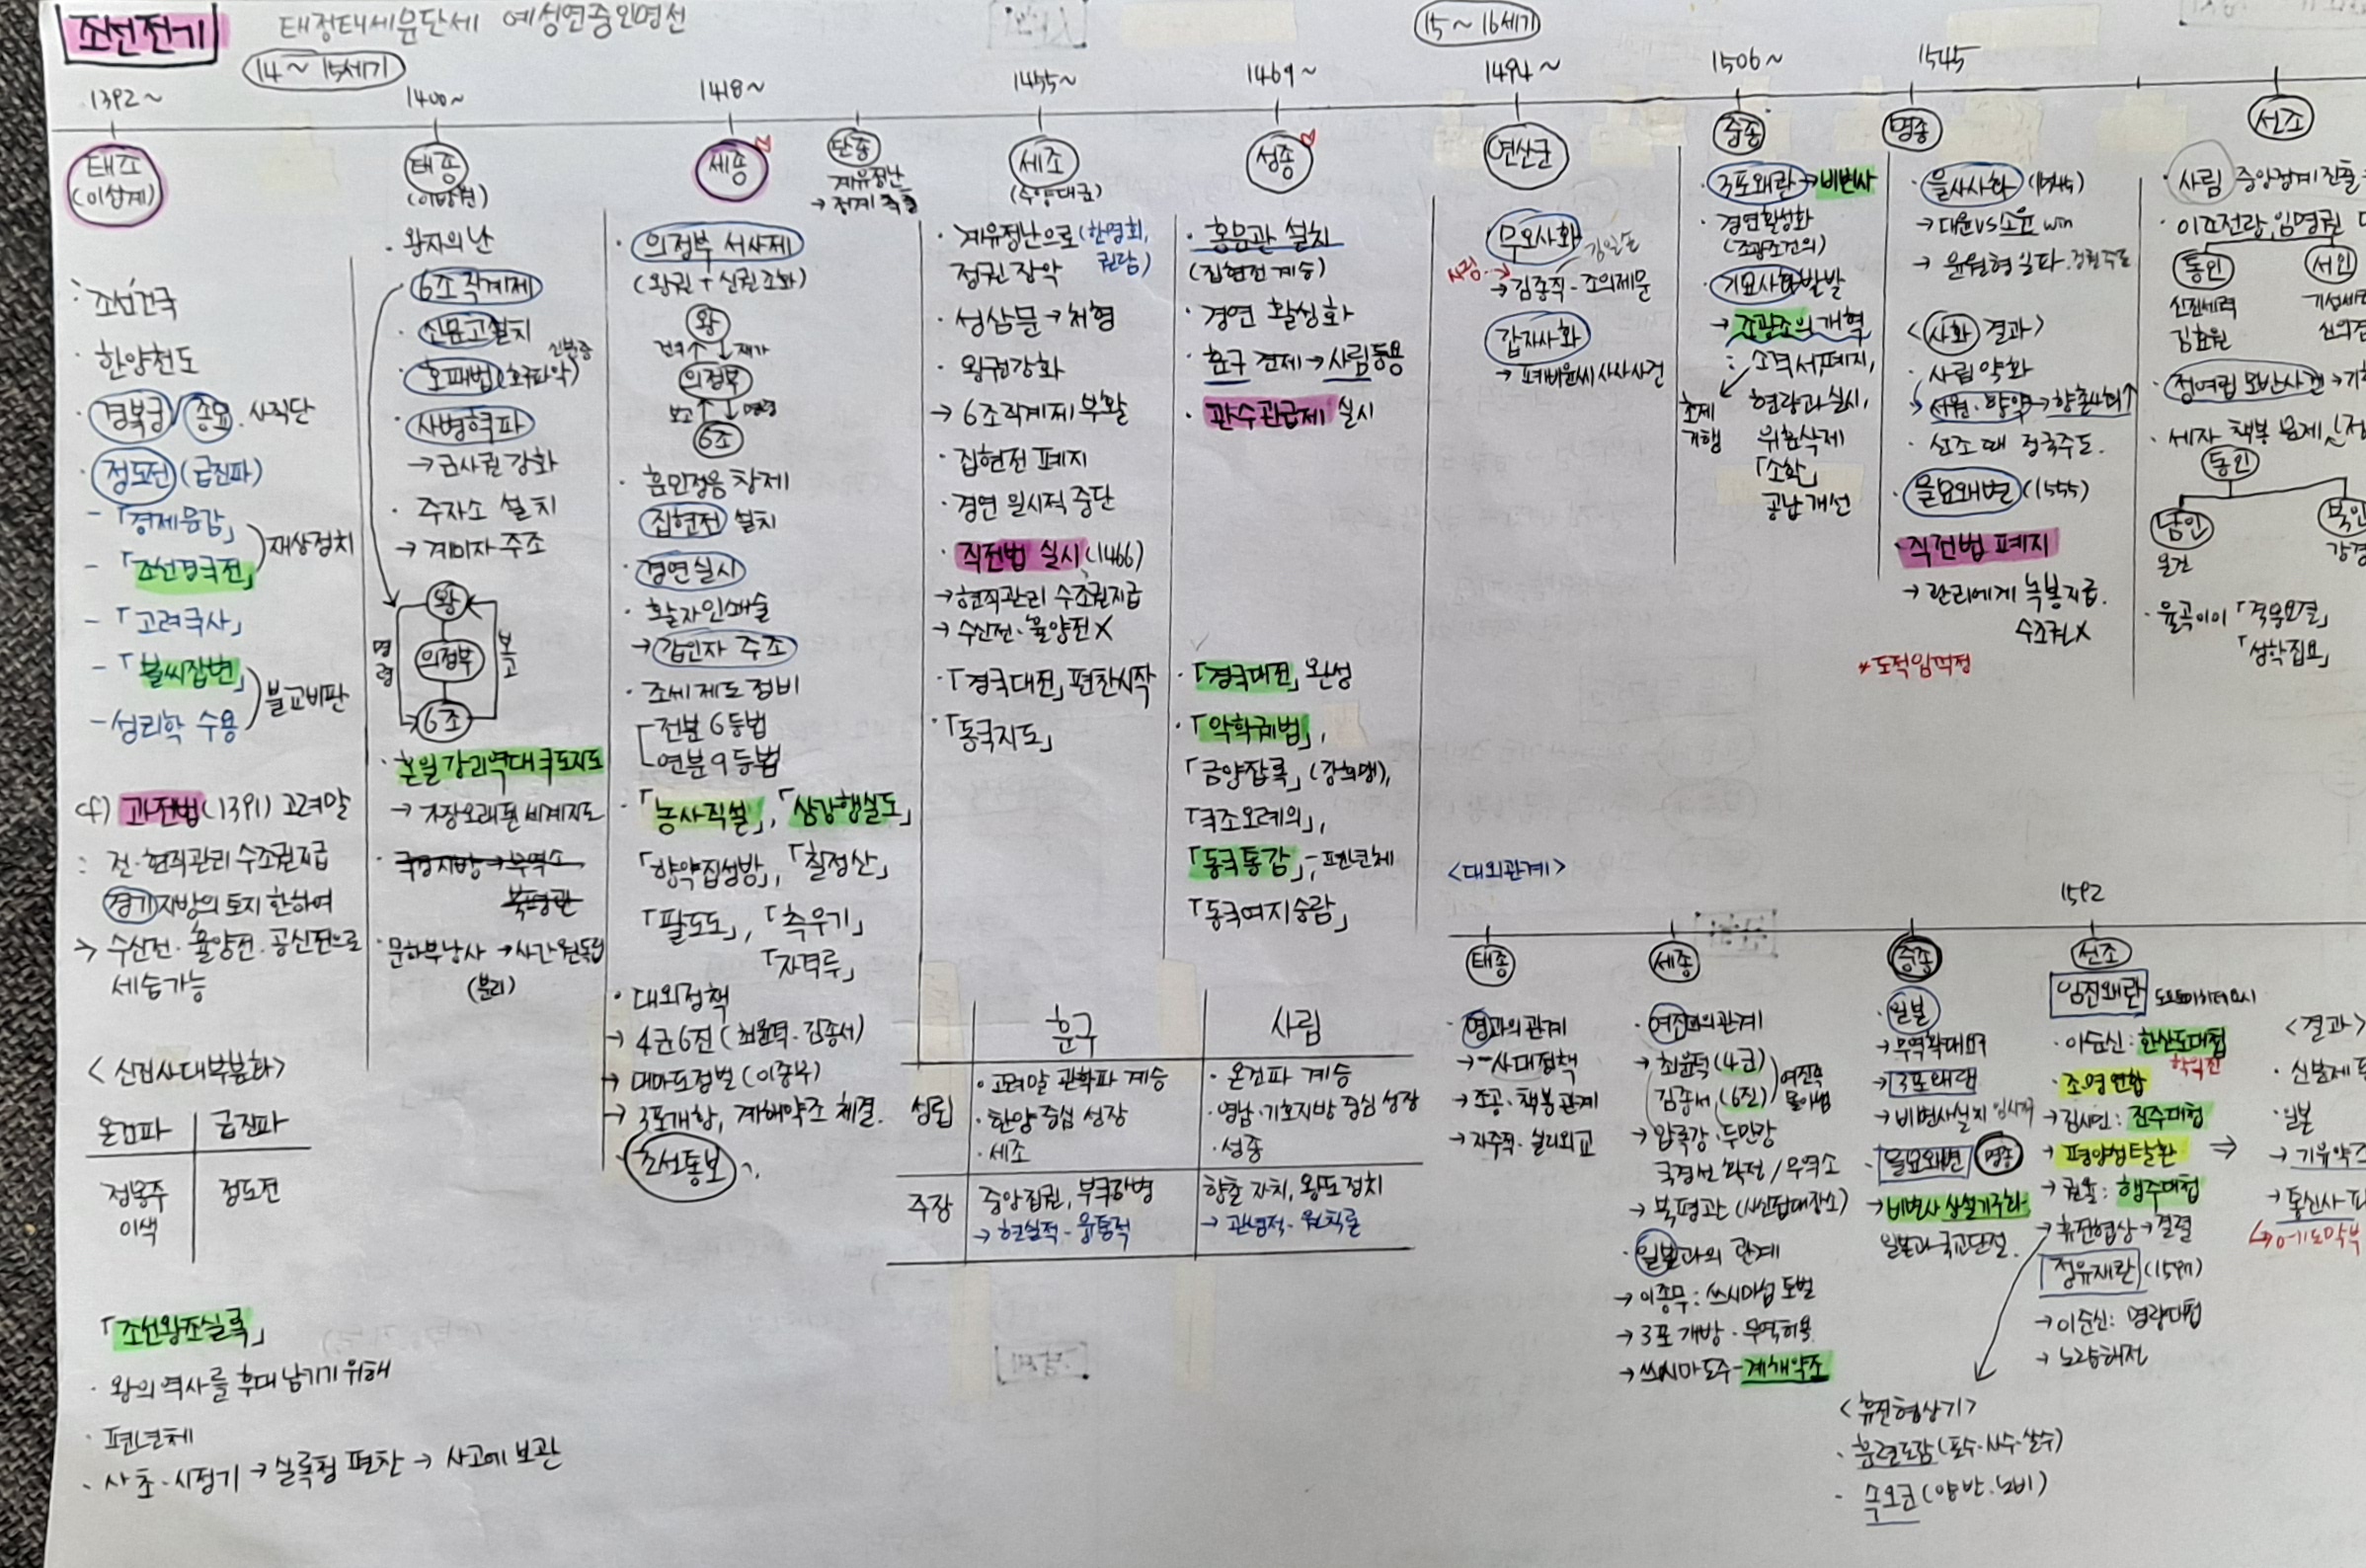 조선전기
태정태세문단세 예성연중인명선
14~15세기
15~16세기
1392~
1400~
1418~
1455~
1469~
1494~
1506~
1545
태조
(이성계)
조선건국
한양천도
경복궁/종묘·사직단
정도전(급진파)
-「경제문감」
-「조선경국전」
재상정치
-「고려국사」
-「불씨잡변」
-성리학 수용
불교비판
cf) 과전법(1391) 고려말
: 전·현직관리 수조권지급
경기지방의 토지 한하여
→ 수신전·휼양전·공신전으로
세습가능
<신진사대부분화>
온건파 급진파
정몽주 정도전
이색
「조선왕조실록」
· 왕의 역사를 후대 남기기 위해
· 편년체
· 사초·시정기 → 실록청 편찬 → 사고에 보관
태종
(이방원)
· 왕자의 난
6조직계제
· 신문고설치
· 호패법(호구파악)
신분증
· 사병혁파
→군사권 강화
· 주자소 설치
→ 계미자 주조
왕
의정부
6조
명령
보고
· 혼일강리역대국도지도
→ 가장오래된 세계지도
· 국경지방→무역소
북평관
· 문하부낭사 → 사간원독립
(분리)
세종
· 의정부 서사제
(왕권 + 신권조화)
왕
건의↑↓재가
의정부
보고↑↓명령
6조
· 훈민정음 창제
집현전 설치
· 경연실시
· 활자인쇄술
→갑인자 주조
· 조세제도정비
전분 6등법
연분 9등법
·「농사직설」,「삼강행실도」
「향약집성방」,「칠정산」
「팔도도」,「측우기」
「자격루」
· 대외정책
→ 4군6진(최윤덕·김종서)
→ 대마도정벌(이종무)
→ 3포개항, 계해약조 체결.
조선통보
단종
계유정난
세조
(수양대군)
· 계유정난으로(한명회,
권람)
정권 장악
· 성삼문→처형
· 왕권강화
→ 6조직계제 부활
· 집현전 폐지
· 경연 일시적 중단
· 직전법 실시(1466)
→현직관리 수조권지급
→ 수신전·휼양전 X
·「경국대전」편찬시작
·「동국지도」
성종
· 홍문관 설치
(집현전 계승)
· 경연 활성화
· 훈구 견제→사림등용
· 관수관급제 실시
·「경국대전」완성
·「악학궤범」,
「금양잡록」(강희맹),
「국조오례의」,
「동국통감」-편년체
「동국여지승람」
훈구 사림
성립
· 고려말 관학파 계승
· 한양 중심 성장
· 세조
· 온건파 계승
· 영남·기호지방 중심 성장
· 성종
주장
중앙집권, 부국강병
→ 현실적·융통적
향촌 자치, 왕도정치
→ 관념적·원칙론
연산군
무오사화
김일손
사림
→김종직-조의제문
갑자사화
→폐비윤씨 사사사건
중종
· 3포왜란→비변사
· 경연활성화
(조광조건의)
· 기묘사화발발
→ 조광조의 개혁
: 소격서폐지,
현량과 실시,
위훈삭제
「소학」
공납개선
명종
· 을사사화(1545)
→대윤vs소윤 win
→ 윤원형일파
<사화 결과>
· 사림약화
서원·향약→향촌사회↑
· 선조 때 정국주도.
· 을묘왜변(1555)
· 직전법 폐지
→ 관리에게 녹봉지급.
수조권X
*도적임꺽정
선조
· 사림 중앙정계 진출
· 이조전랑 임명권
동인
신진세력
김효원
서인
기성세
심의겸
· 정여립 모반사건→기
· 세자 책봉 문제
동인
남인
온건
북인
강경
· 율곡이이「격몽요결」
「성학집요」
<대외관계>
1592
태종
· 명과의 관계
→사대정책
→ 조공·책봉관계
→ 자주적·실리외교
세종
· 여진과의관계
→ 최윤덕(4군)
김종서(6진)
→ 압록강·두만강
국경선 확정/무역소
→ 북평관(사신접대장소)
· 일본과의 관계
→이종무: 쓰시마섬 토벌
→3포 개방·무역허용
→쓰시마도주-계해약조
중종
· 일본
→무역확대요구
→3포왜란
→비변사설치 임시기구
을묘왜변 명종
→비변사 상설기구화
일본과국교단절.
선조
임진왜란 도요토미히데요시
· 이순신: 한산도대첩
학익진
· 조명연합
→김시민: 진주대첩
→ 평양성탈환 ⇒
→권율: 행주대첩
→ 휴전협상→결렬
정유재란(1597)
→이순신: 명량대첩
→ 노량해전
<휴전협상기>
· 훈련도감(포수·사수·살수)
· 속오군(양반·노비)
<결과>
· 신분제
· 일본
→ 기유약조
→통신사 파
↳에도막부